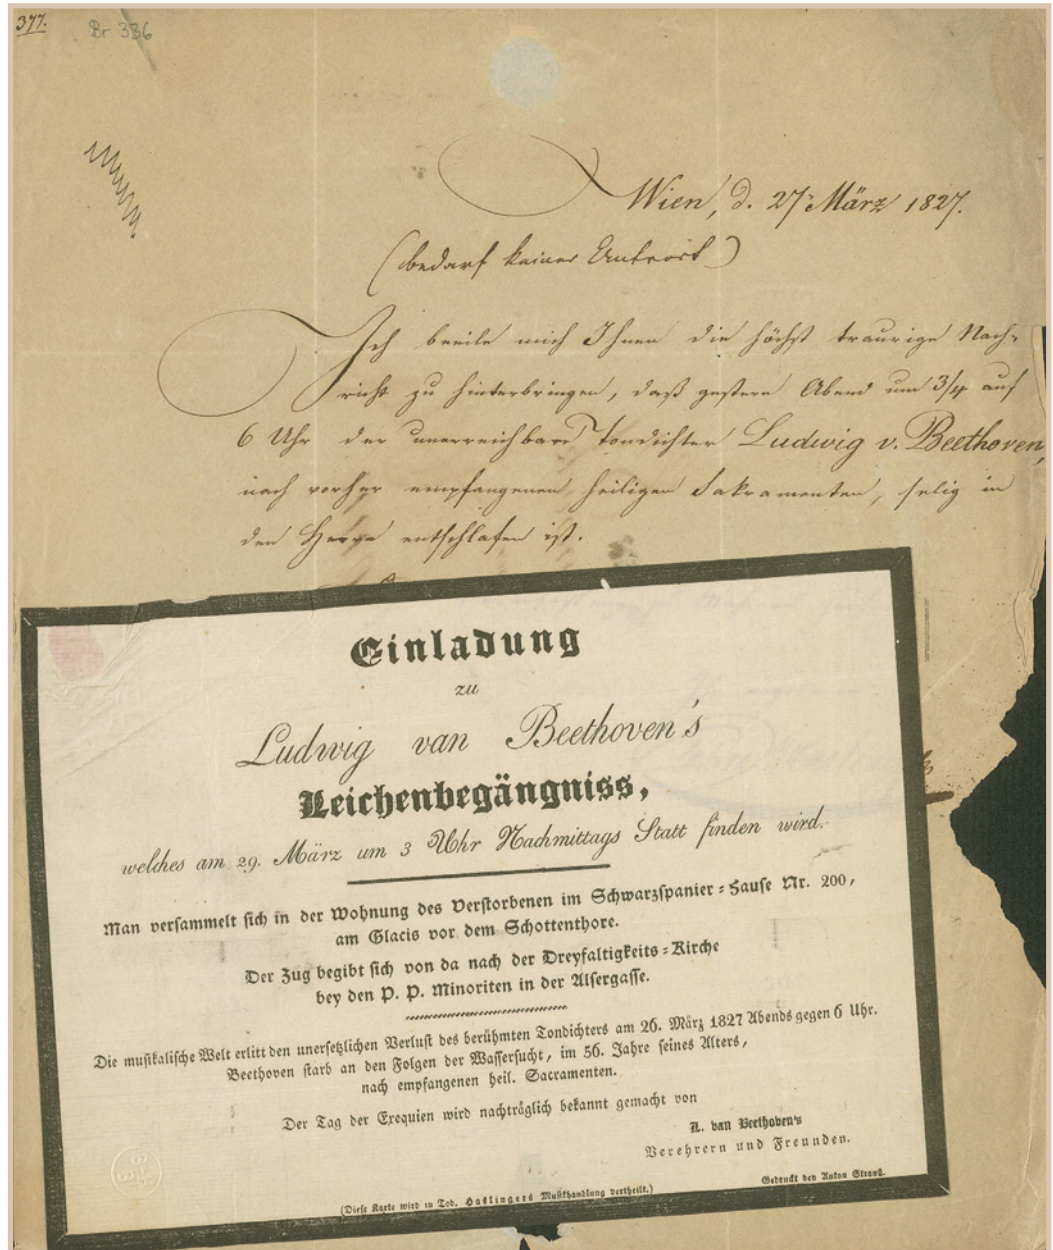 377.
Br 336
Wien, d. 27 März 1827.
(bedarf keiner Antwort)
Ich beeile mich Ihnen die höchst traurige Nach-
richt zu hinterbringen, daß gestern Abend um 3/4 auf
6 Uhr der unerreichbare Tondichter Ludwig v. Beethoven,
nach vorher empfangenen heiligen Sakramenten, selig in
den Herrn entschlafen ist.
Einladung
zu
Ludwig van Beethoven's
Leichenbegängniss,
welches am 29. März um 3 Uhr Nachmittags Statt finden wird.
Man versammelt sich in der Wohnung des Verstorbenen im Schwarzspanier-Hause Nr. 200,
am Glacis vor dem Schottenthore.
Der Zug begibt sich von da nach der Dreyfaltigkeits-Kirche
bey den P. P. Minoriten in der Alsergasse.
Die musikalische Welt erlitt den unersetzlichen Verlust des berühmten Tondichters am 26. März 1827 Abends gegen 6 Uhr.
Beethoven starb an den Folgen der Wassersucht, im 56. Jahre seines Alters,
nach empfangenen heil. Sacramenten.
Der Tag der Exequien wird nachträglich bekannt gemacht von
L. van Beethoven's
Verehrern und Freunden.
Gedruckt bey Anton Strauß.
(Diese Karte wird in Tob. Haslingers Musikhandlung vertheilt.)